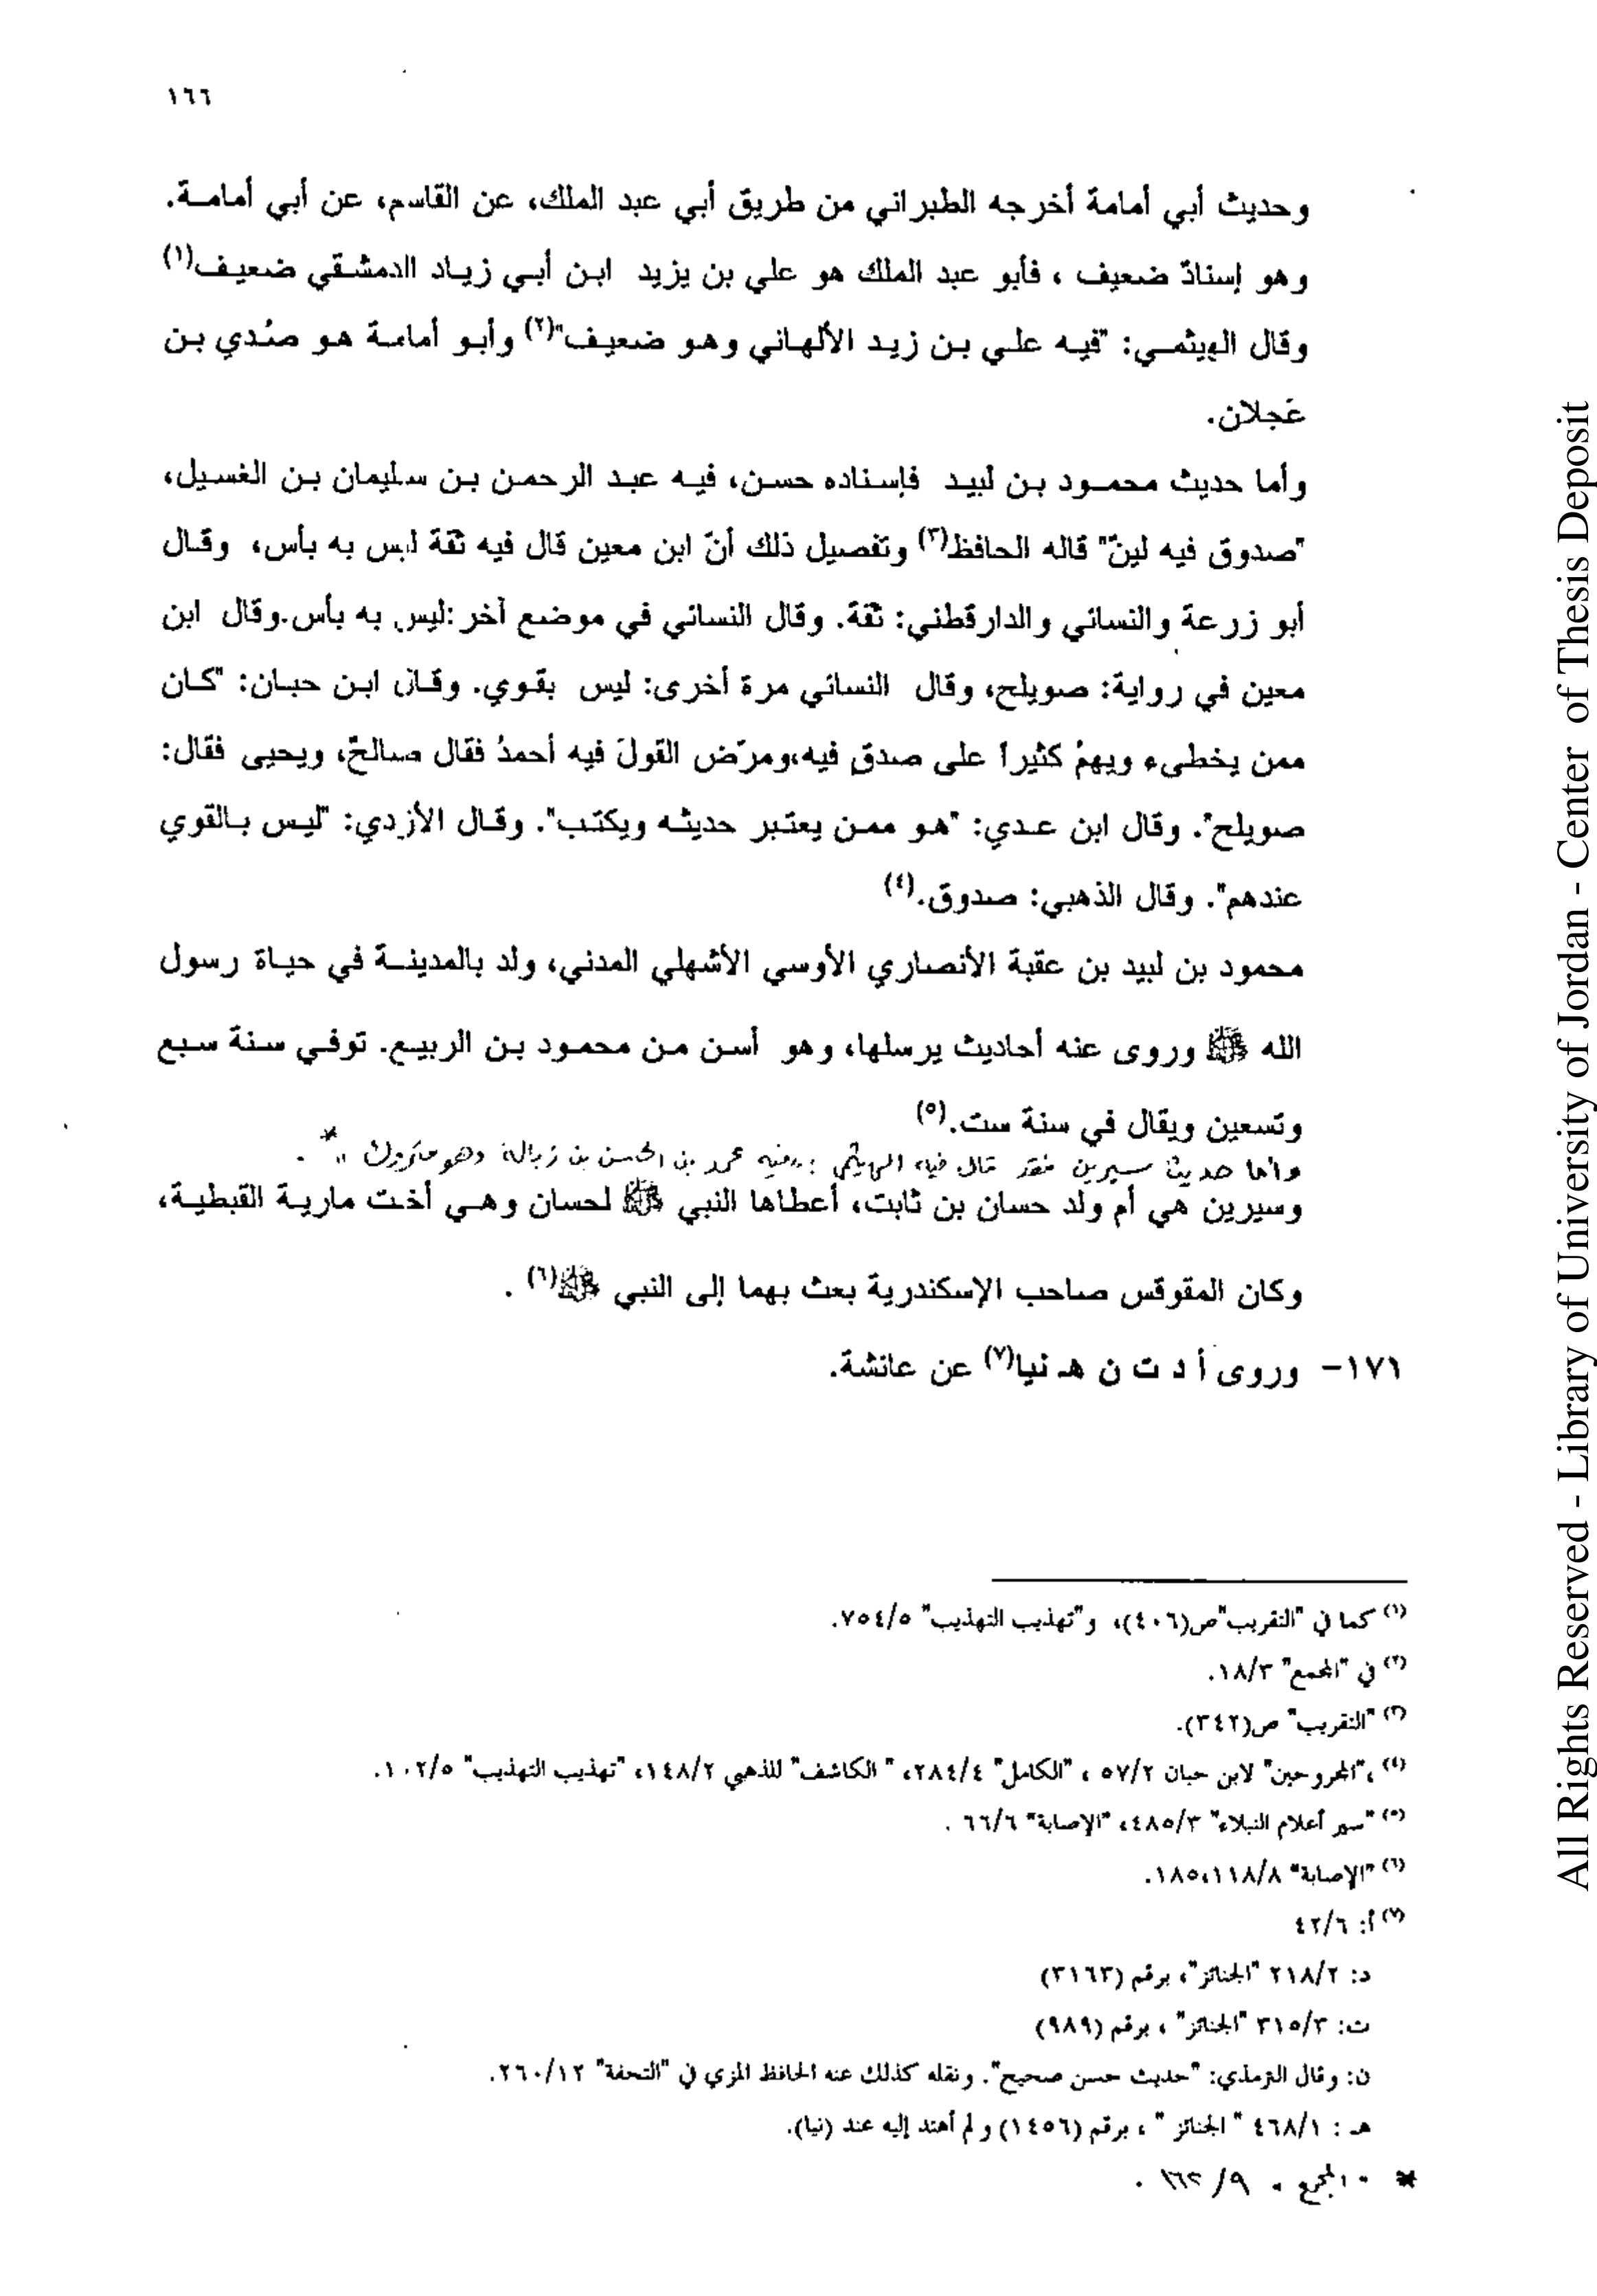 ١٦٦
وحديث أبي أمامة أخرجه الطبراني من طريق أبي عبد الملك، عن القاسم، عن أبي أمامة.
وهو إسنادٌ ضعيف ، فأبو عبد الملك هو علي بن يزيد ابن أبي زياد الدمشقي ضعيف(١)
وقال الهيثمي: "فيه علي بن زيد الألهاني وهو ضعيف"(٢) وأبو أمامة هو صُدي بن
عَجلان.
وأما حديث محمود بن لبيد فإسناده حسن، فيه عبد الرحمن بن سليمان بن الغسيل،
"صدوق فيه لينٌ" قاله الحافظ(٣) وتفصيل ذلك أنّ ابن معين قال فيه ثقة ليس به بأس، وقال
أبو زرعة والنسائي والدارقطني: ثقة. وقال النسائي في موضع آخر:ليس به بأس.وقال ابن
معين في رواية: صويلح، وقال النسائي مرة أخرى: ليس بقوي. وقال ابن حبان: "كان
ممن يخطىء ويهمُ كثيراً على صدق فيه،ومرّض القولَ فيه أحمدُ فقال صالحٌ، ويحيى فقال:
صويلح". وقال ابن عدي: "هو ممن يعتبر حديثه ويكتب". وقال الأزدي: "ليس بالقوي
عندهم". وقال الذهبي: صدوق.(٤)
محمود بن لبيد بن عقبة الأنصاري الأوسي الأشهلي المدني، ولد بالمدينة في حياة رسول
الله ﷺ وروى عنه أحاديث يرسلها، وهو أسن من محمود بن الربيع. توفي سنة سبع
وتسعين ويقال في سنة ست.(٥)
وأما حديث سيرين فقد قال فيه الهيثمي : "فيه محمد بن الحسن بن زبالة وهو متروك" * .
وسيرين هي أم ولد حسان بن ثابت، أعطاها النبي ﷺ لحسان وهي أخت مارية القبطية،
وكان المقوقس صاحب الإسكندرية بعث بهما إلى النبي ﷺ(٦) .
١٧٦- وروى أ د ت ن هـ نيا(٧) عن عائشة.
(١) كما في "التقريب"ص(٤٠٦)، و"تهذيب التهذيب" ٧٥٤/٥.
(٢) في "المجمع" ١٨/٣.
(٣) "التقريب" ص(٣٤٢).
(٤) ،"المجروحين" لابن حبان ٥٧/٢ ، "الكامل" ٢٨٤/٤، " الكاشف" للذهبي ١٤٨/٢، "تهذيب التهذيب" ١٠٢/٥.
(٥) "سير أعلام النبلاء" ٤٨٥/٣، "الإصابة" ٦٦/٦ .
(٦) "الإصابة" ١٨٥،١١٨/٨.
(٧) أ: ٤٢/٦
د: ٢١٨/٢ "الجنائز"، برقم (٣١٦٣)
ت: ٣١٥/٣ "الجنائز" ، برقم (٩٨٩)
ن: وقال الترمذي: "حديث حسن صحيح". ونقله كذلك عنه الحافظ المزي في "التحفة" ٢٦٠/١٢.
هـ : ٤٦٨/١ " الجنائز " ، برقم (١٤٥٦) و لم أهتد إليه عند (نيا).
* " المجمع " ٩/ ١٦٢ .
All Rights Reserved - Library of University of Jordan - Center of Thesis Deposit